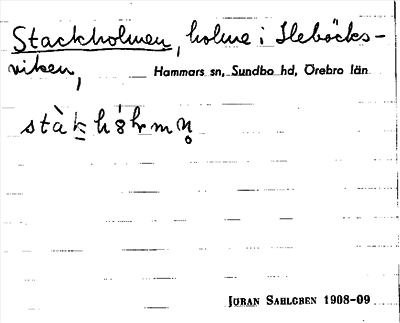 Stackholmen, holme i Ileböcks-
viken,
Hammars sn, Sundbo hd, Örebro län
JÖRAN SAHLGREN 1908-09